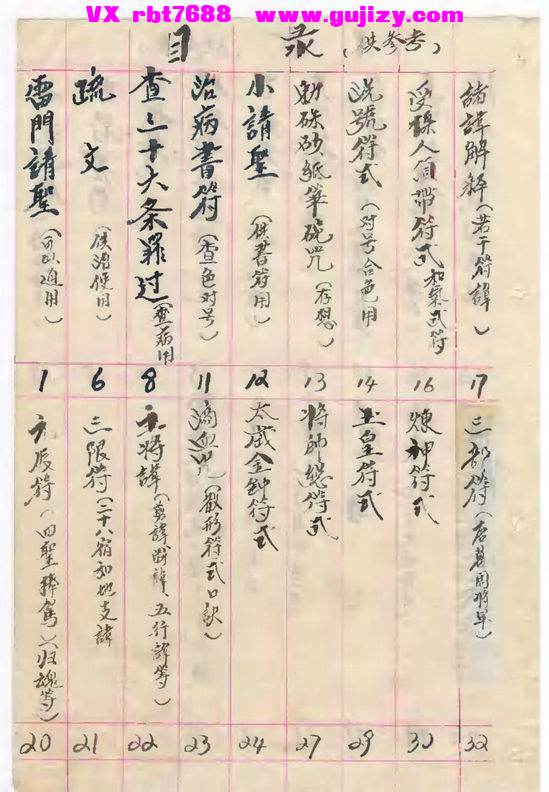 VX rbt7688 www.gujizy.com
目录（供参考）
雷門請聖（可以通用） 1
疏文（供治使用） 6
查三十六条罪过（查病用 8
治病書符（查色对号） 11
小請聖（供書符用） 12
勅硃砂紙筆硯咒（存想） 13
洗號符式（对号合色用 14
受 人 带符式 式符 16
諸諱解釋（若干符諱） 17
元辰符（四聖捧駕）（归魂等） 20
三限符（二十八宿和地支諱 21
主将諱（剪諱、断諱、五行諱等） 22
滴血咒（ 形符式口訣） 23
太歲金鈡符式 24
将帥總符式 27
玉皇符式 29
煉神符式 30
三部符 32